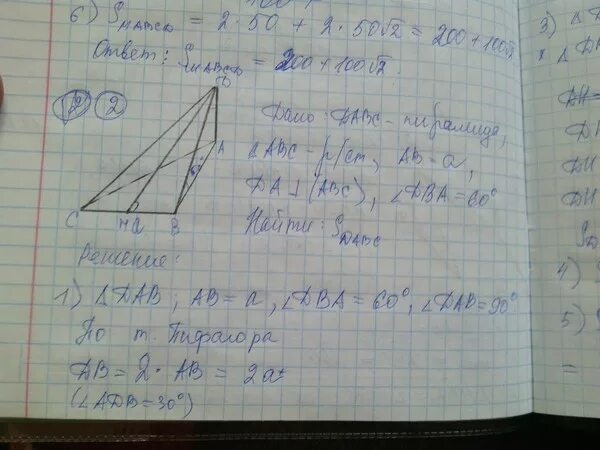 6) S_MABCD = 2·50 + 2·50√2 = 200+100√2
Ответ: S_MABCD = 200+100√2.
2
D
A
60°
C
H
a
B
Дано: DABC – пирамида,
△ABC – р/ст, AB = a,
DA⊥(ABC), ∠DBA = 60°
Найти: S_DABC
Решение:
1) △DAB, AB = a, ∠DBA = 60°, ∠DAB = 90°
По т. Пифагора
DB = 2·AB = 2a
(∠ADB = 30°)
3)
DH=
DH
DH
4)
5)
=